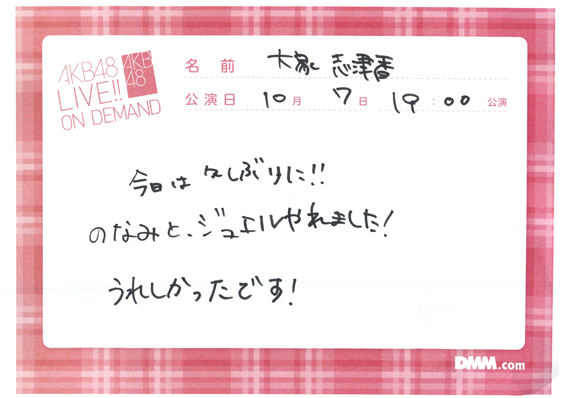 AKB48
LIVE!!
ON DEMAND
AKB
48
名前 大家志津香
公演日 10月 7日 19:00 公演
今日は久しぶりに!!
のなみと、ジュエルやれました!
うれしかったです!
DMM.com